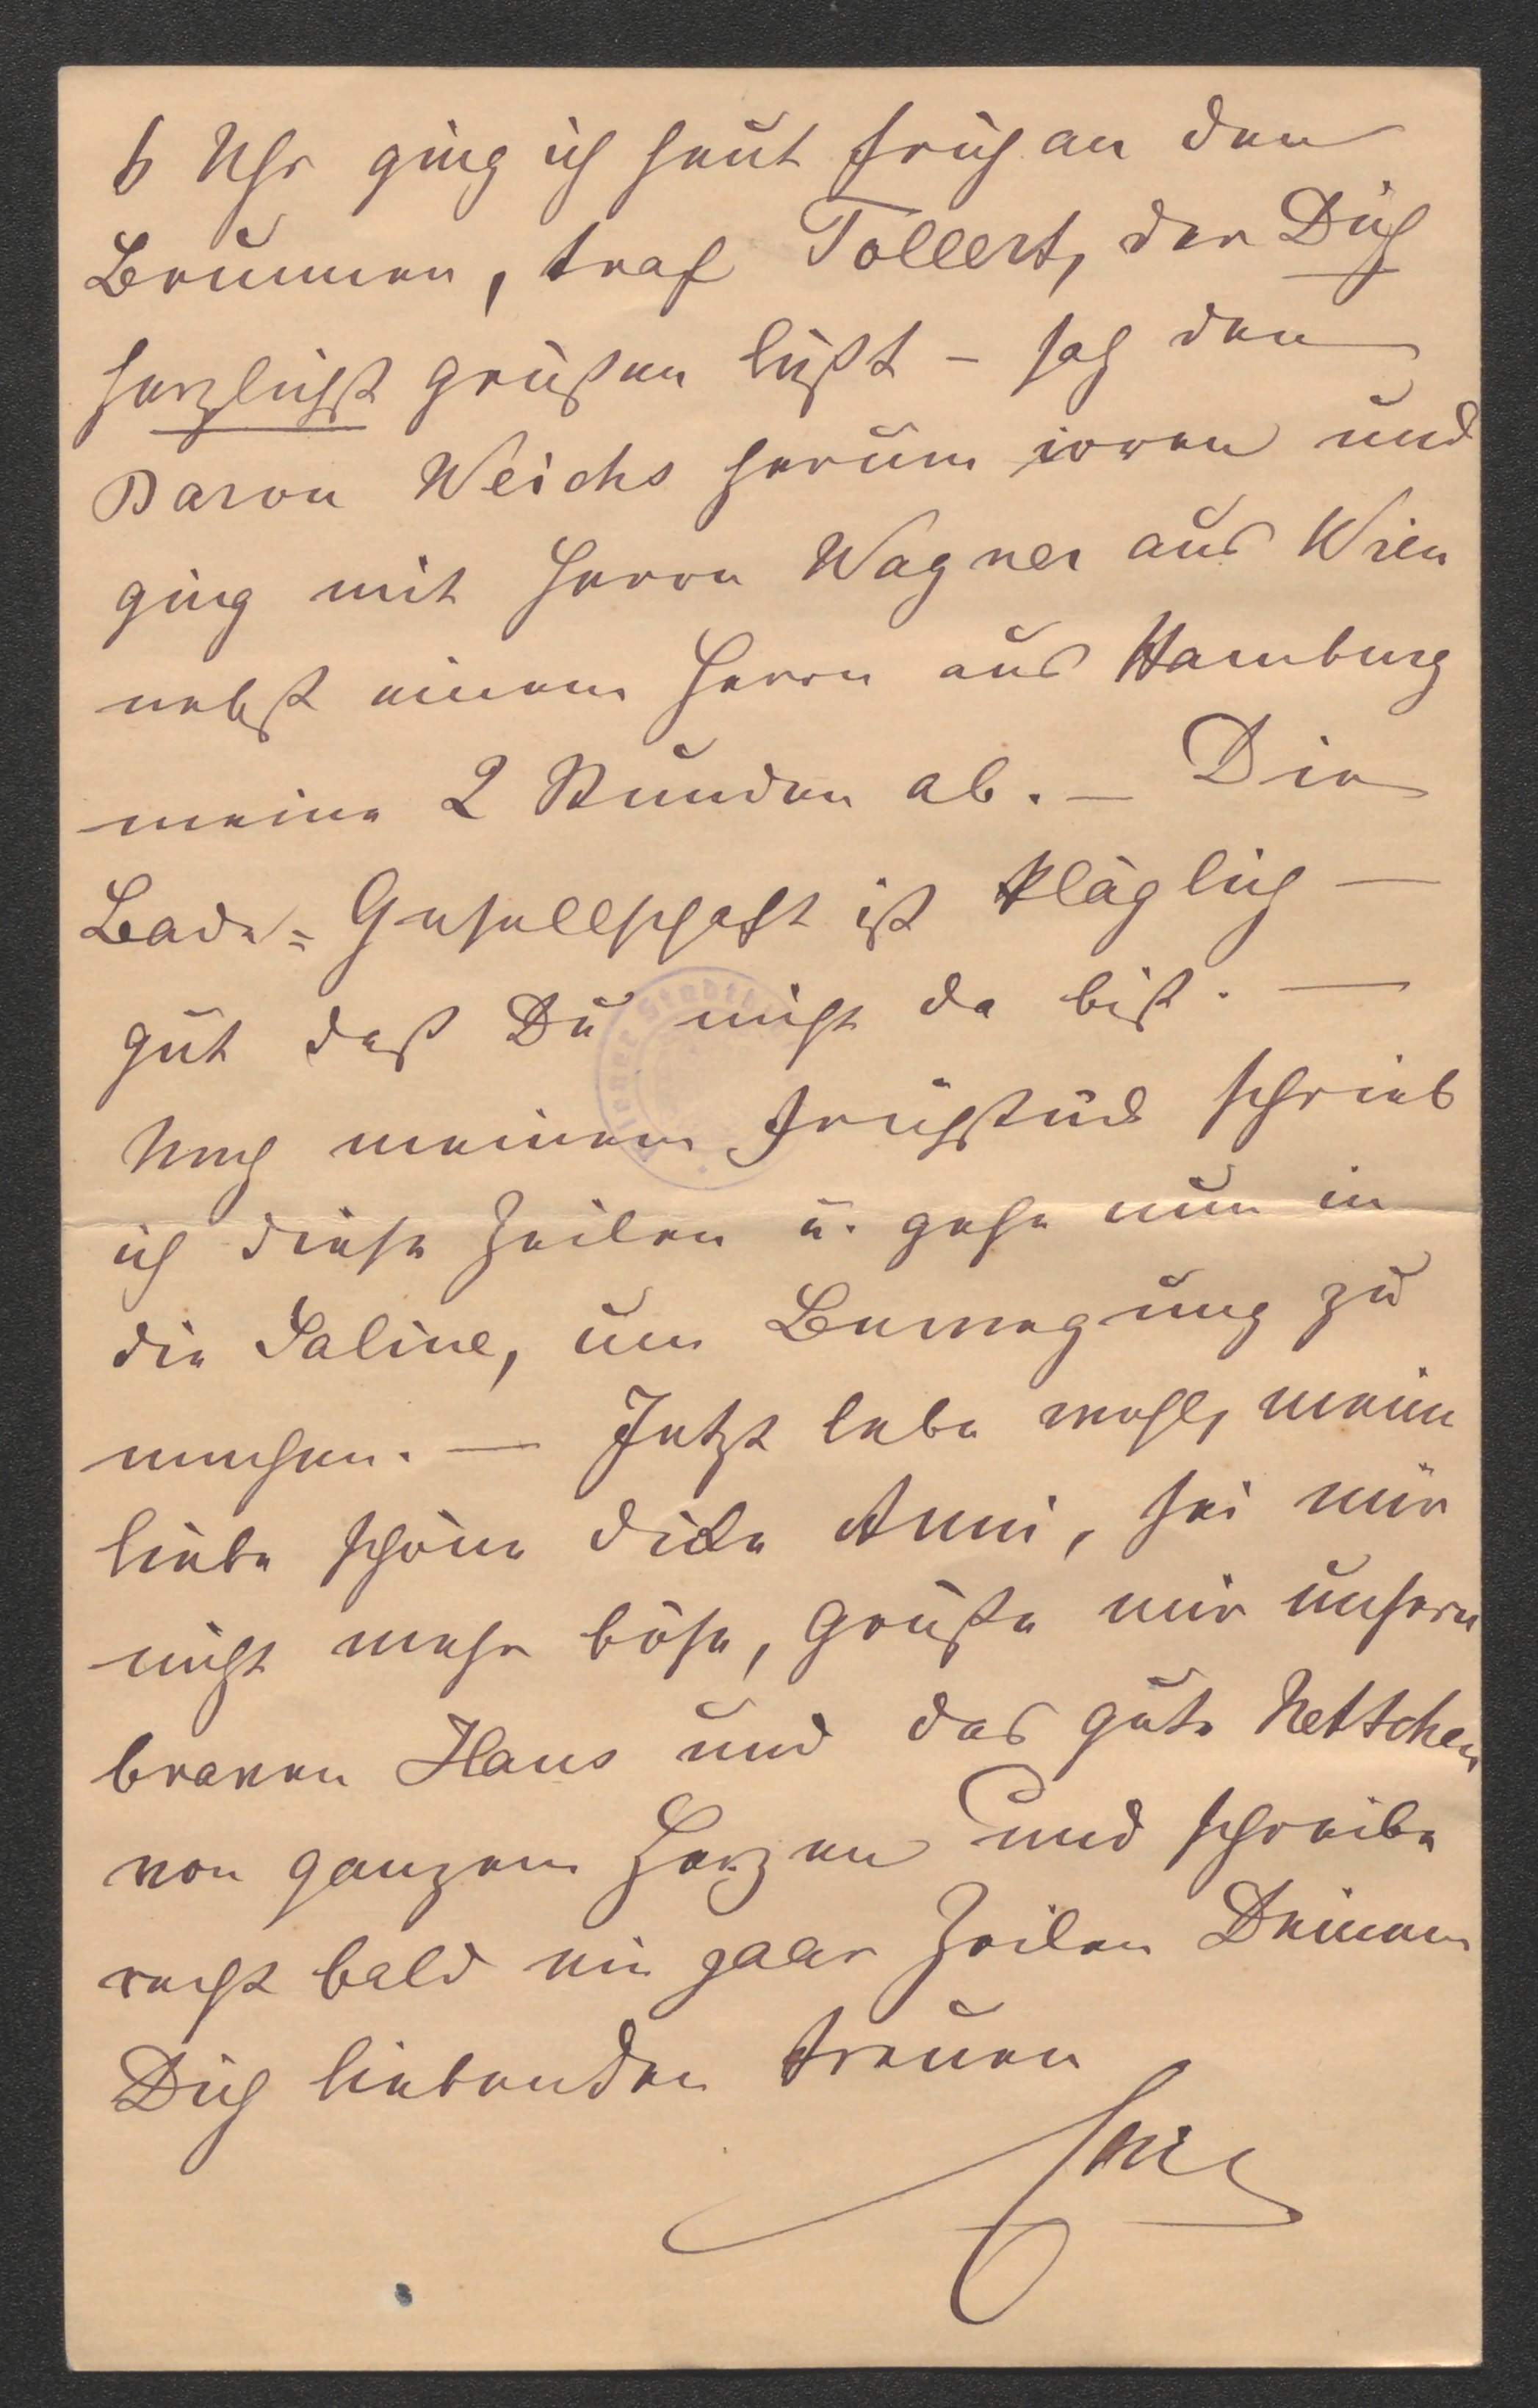 6 Uhr ging ich heut früh an den
Brunnen, traf Tollert, der Dich
herzlichst grüßen läßt - sah den
Baron Weichs herum irren und
ging mit Herrn Wagner aus Wien
nebst einem Herrn aus Hamburg
meine 2 Stunden ab. — Die
Bade-Gesellschaft ist kläglich —
gut daß Du nicht da bist. —
Nach meinem Frühstück schrieb
ich diese Zeilen u. gehe nun in
die Saline, um Bewegung zu
machen. — Jetzt lebe wohl, meine
liebe schöne dicke Anni, sei mir
nicht mehr böse, Grüße mir unsern
braven Hans und das gute Nettchen
von ganzem Herzen und schreibe
recht bald ein paar Zeilen Deinem
Dich liebenden treuen